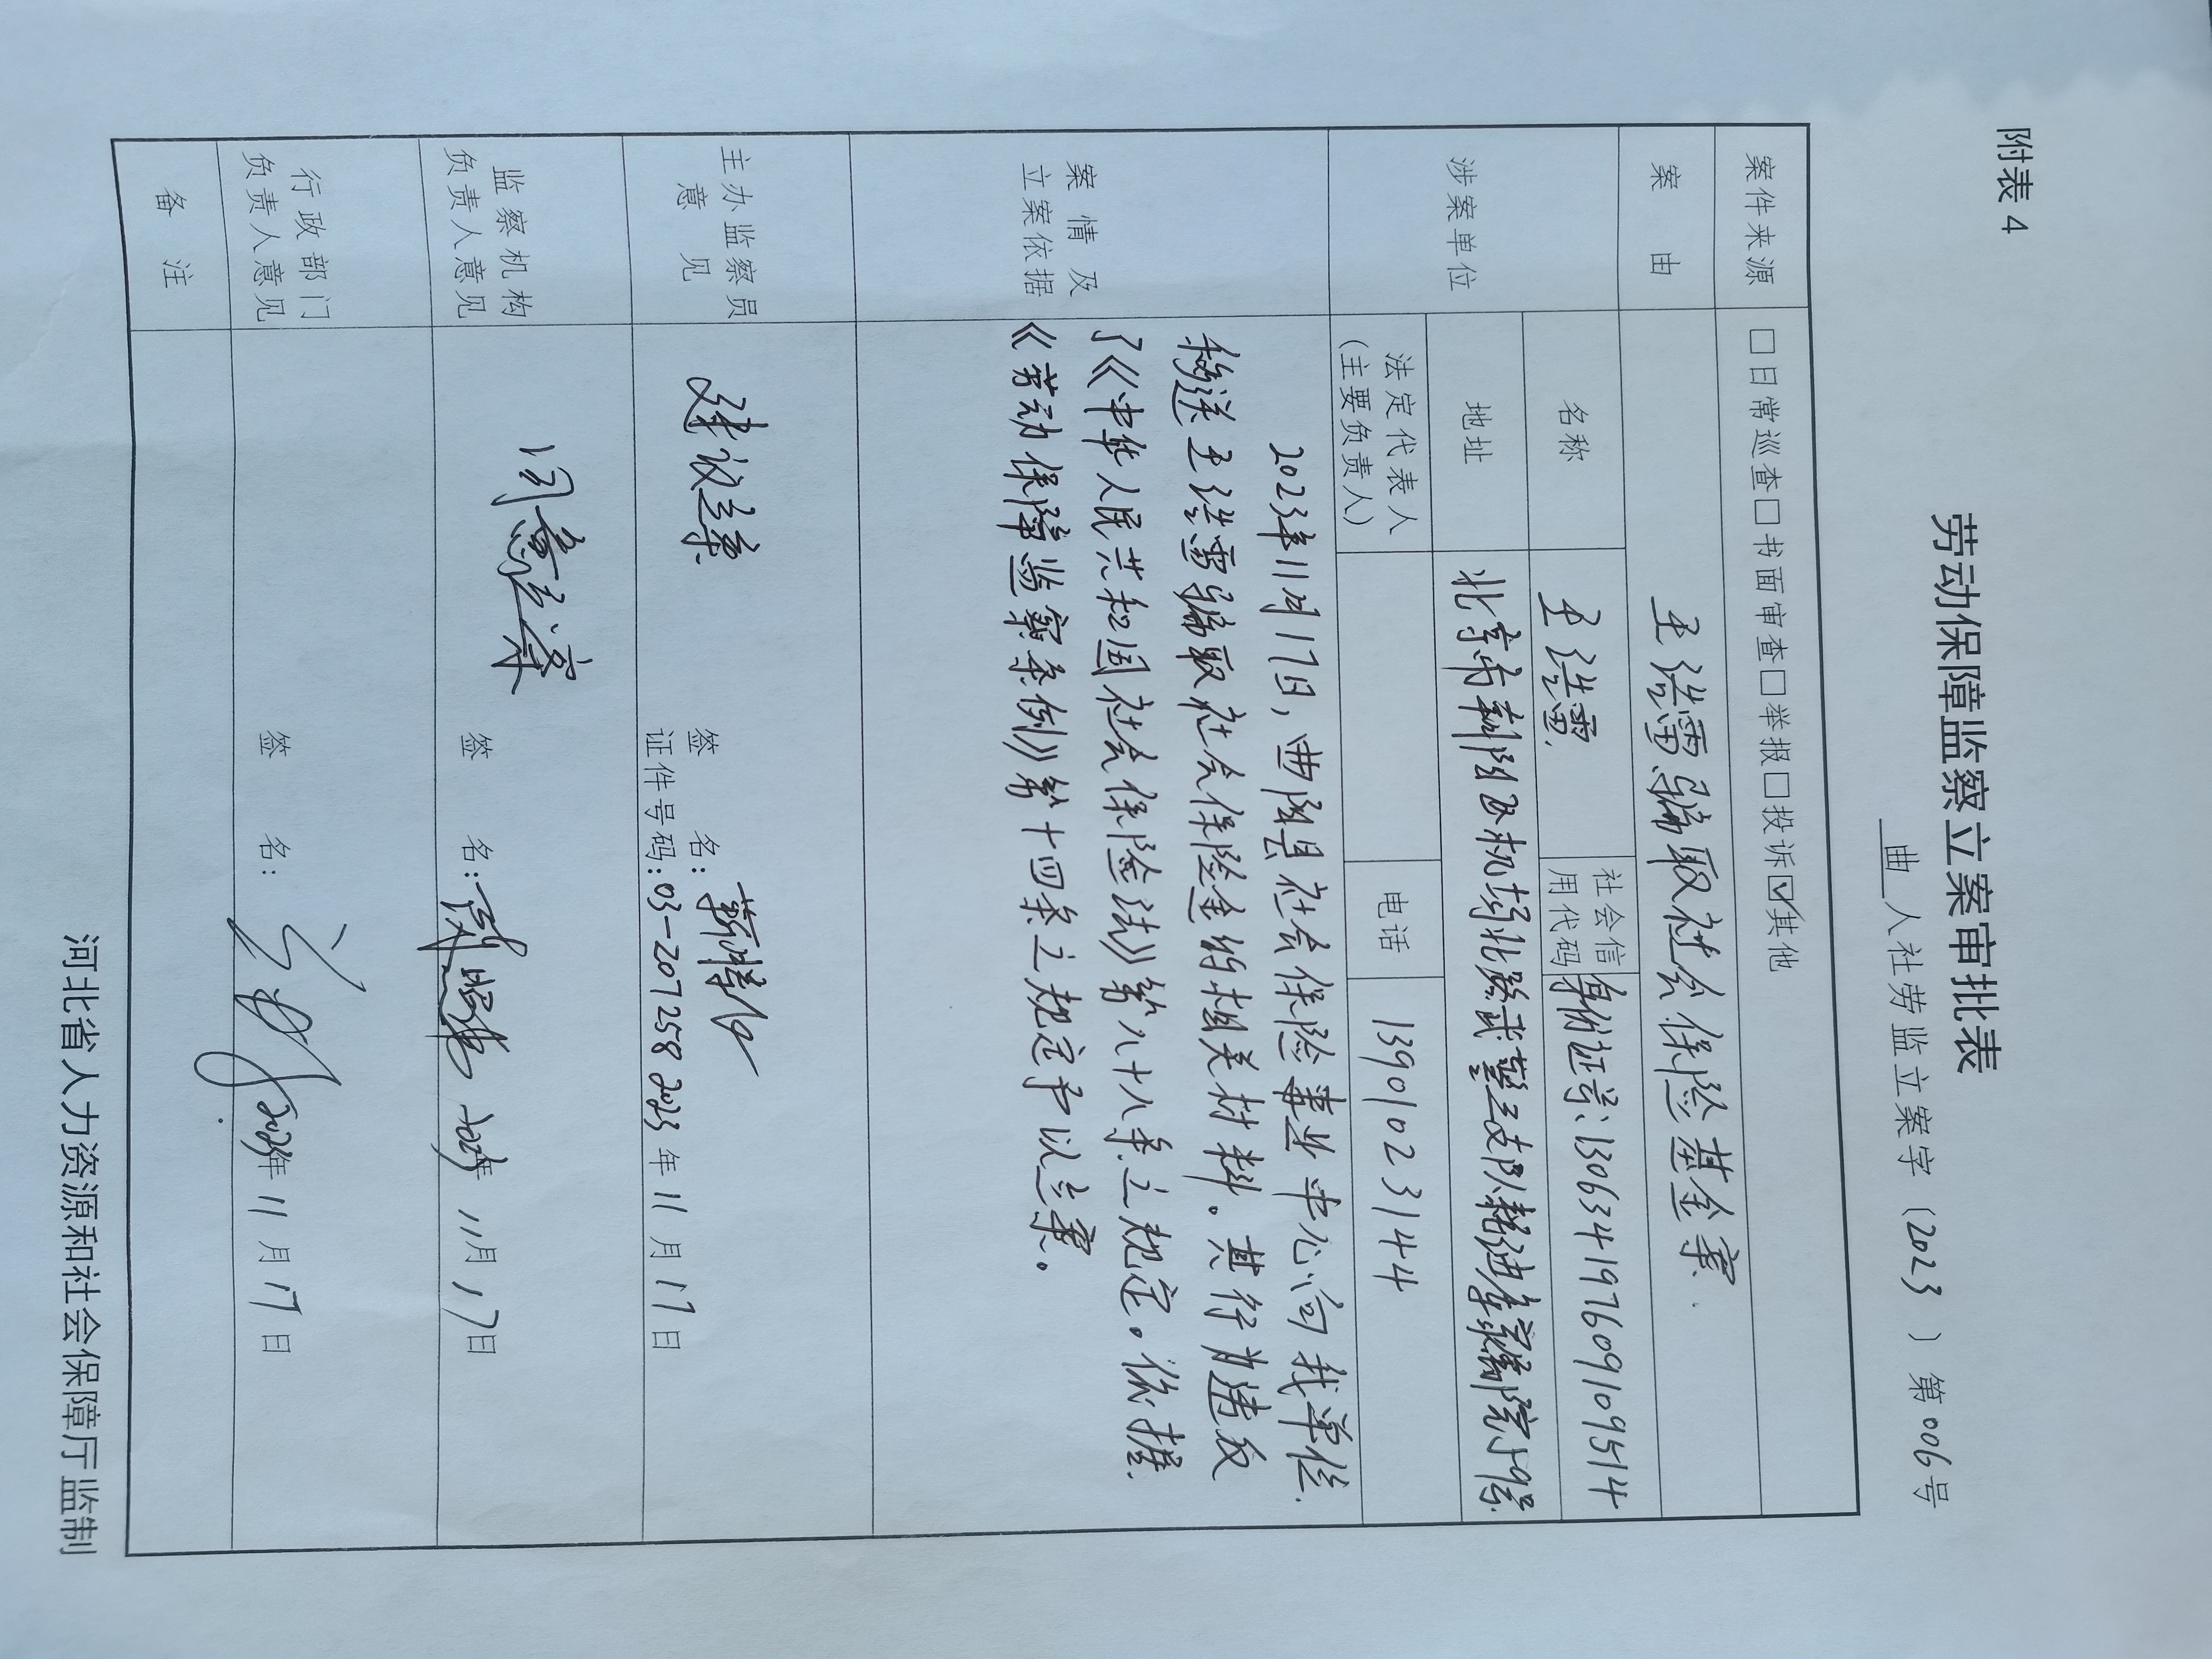 附表4
劳动保障监察立案审批表
曲人社劳监立案字（2023）第006号
案件来源 □日常巡查□书面审查□举报□投诉☑其他
案由 王浩雷骗取社会保险基金案.
涉案单位 名称 王浩雷. 社会信用代码 身份证号：130634197609109514
地址 北京市朝阳区机场北路武警三支队
法定代表人（主要负责人） 电话 13901023144
案情及立案依据
2023年11月17日，曲阳县社会保险事业中心向我单位.
移送王浩雷骗取社会保险金的相关材料。其行为违反
了《中华人民共和国社会保险法》第八十八条之规定。依据.
《劳动保障监察条例》第十四条之规定予以立案。
主办监察员意见 建议立案
签名：
证件号码：03-207258 2023年11月17日
监察机构负责人意见 同意立案
签名： 2023年11月17日
行政部门负责人意见
签名： 2023年11月17日
备注
河北省人力资源和社会保障厅监制